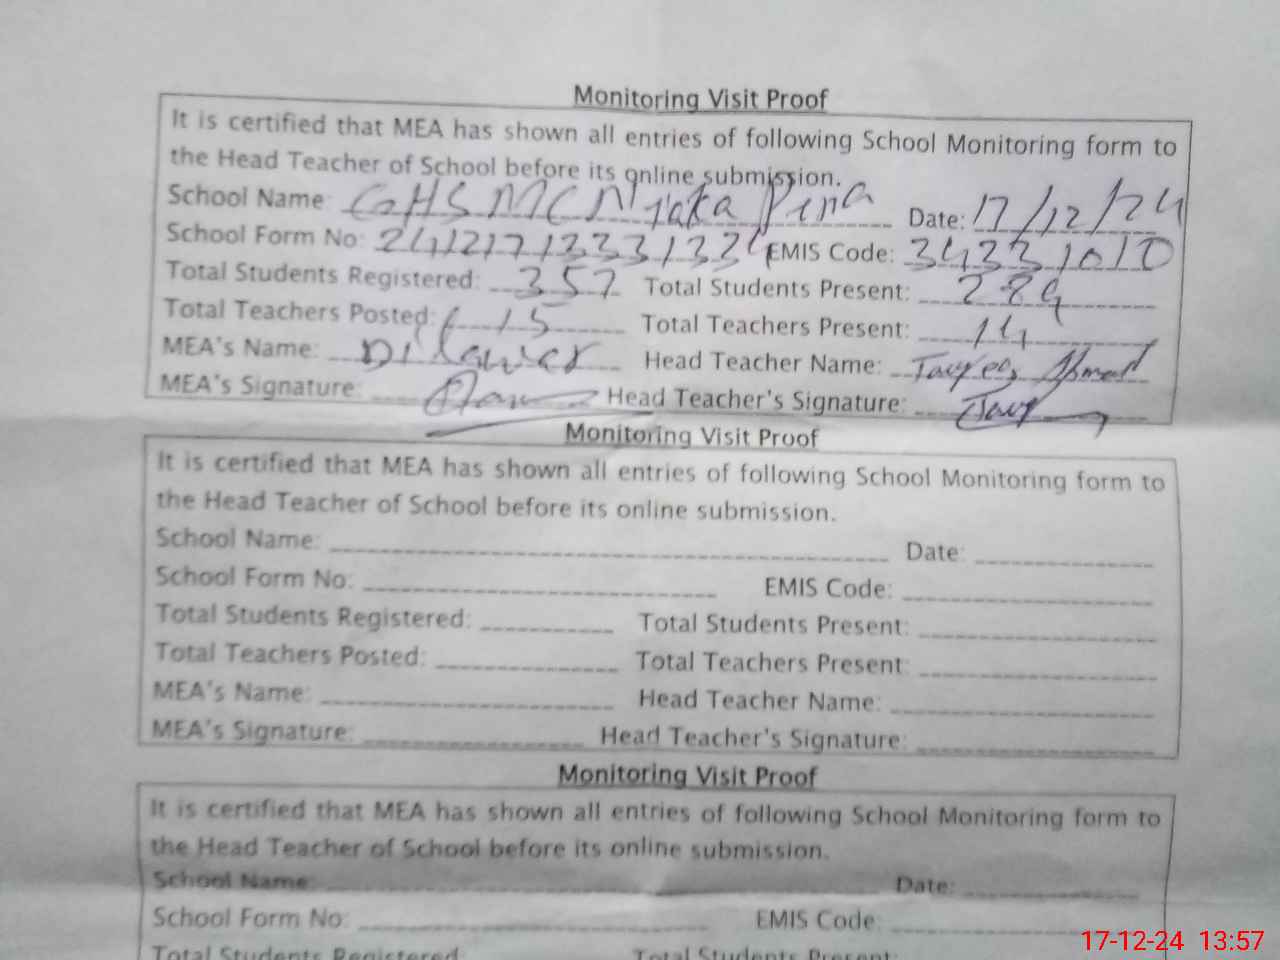 Monitoring Visit Proof
It is certified that MEA has shown all entries of following School Monitoring form to
the Head Teacher of School before its online submission.
School Name: GHS MC Njaka Pira Date: 17/12/24
School Form No: 241217133313 EMIS Code: 34331010
Total Students Registered: 357 Total Students Present: 289
Total Teachers Posted: 15 Total Teachers Present: 14
MEA's Name: Dilawar Head Teacher Name: Ahmad
MEA's Signature: Head Teacher's Signature:
Monitoring Visit Proof
It is certified that MEA has shown all entries of following School Monitoring form to
the Head Teacher of School before its online submission.
School Name: Date:
School Form No: EMIS Code:
Total Students Registered: Total Students Present:
Total Teachers Posted: Total Teachers Present:
MEA's Name: Head Teacher Name:
MEA's Signature: Head Teacher's Signature:
Monitoring Visit Proof
It is certified that MEA has shown all entries of following School Monitoring form to
the Head Teacher of School before its online submission.
School Name: Date:
School Form No: EMIS Code:
Total Students Registered: Total Students Present:
17-12-24 13:57